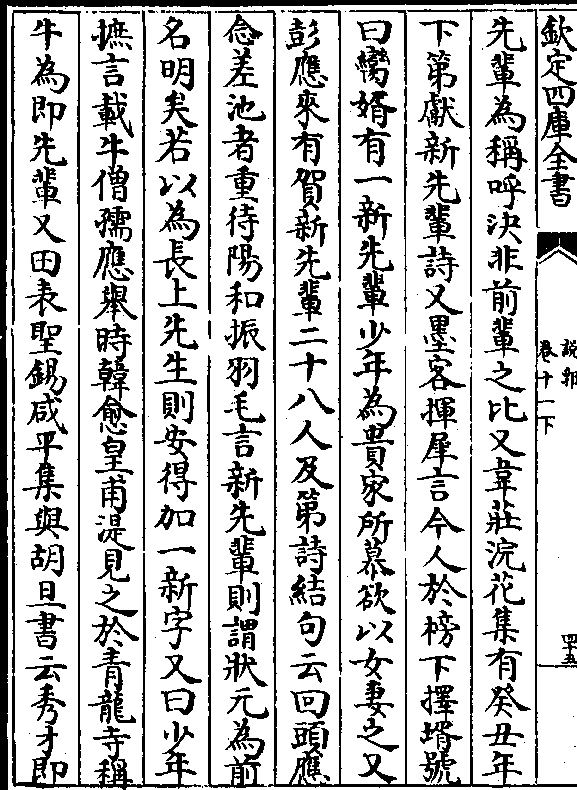 欽定四庫全書
說郛
卷十一下
四十五
先輩為稱呼決非前輩之比又韋莊浣花集有癸丑年
下第獻新先輩詩又墨客揮犀言今人於榜下擇壻號
曰臠婿有一新先輩少年為貴家所慕欲以女妻之又
彭應來有賀新先輩二十八人及第詩結句云回頭應
念差池者重待陽和振羽毛言新先輩則謂狀元為前
名明矣若以為長上先生則安得加一新字又曰少年
摭言載牛僧孺應舉時韓愈皇甫湜見之於青龍寺稱
牛為即先輩又田表聖錫咸平集與胡旦書云秀才即